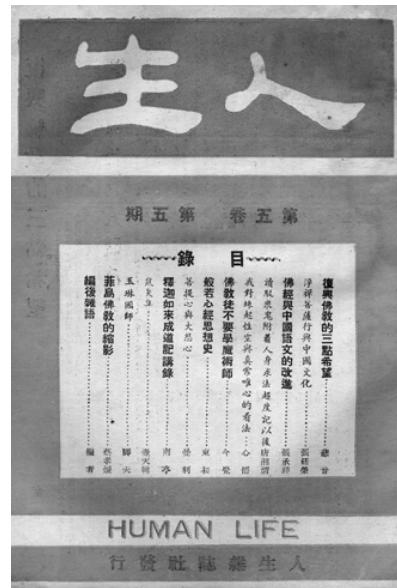 人生
第五卷 第五期
目錄
復興佛教的三點希望
淨禪菩薩行與中國文化 張廷榮
佛經與中國語文的改進
附着人身求法超度記以後 唐湘清
我對緣起性空與真常唯心的看法 心悟
佛教徒不要學魔術師 今覺
般若心經思想史 東初
菩提心與大悲心
釋迦如來成道記講錄 南亭
玉琳國師
菲島佛教的縮影
編後雜語 編者
HUMAN LIFE
人生雜誌社發行